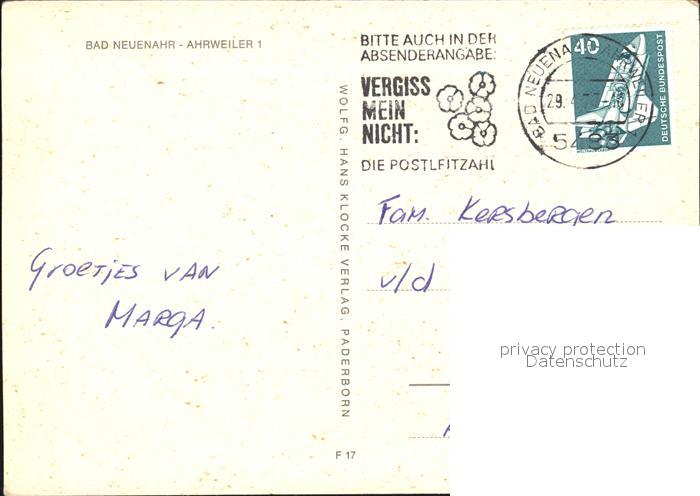 BAD NEUENAHR - AHRWEILER 1
BITTE AUCH IN DER
ABSENDERANGABE:
VERGISS
MEIN
NICHT:
DIE POSTLEITZAHL
BAD NEUENAHR-AHRWEILER 1
29. 4.
5483
40
DEUTSCHE BUNDESPOST
WOLFG. HANS KLOCKE VERLAG, PADERBORN
Fam. Kersbergen
v/d
Groetjes van
Marga.
privacy protection
Datenschutz
F 17